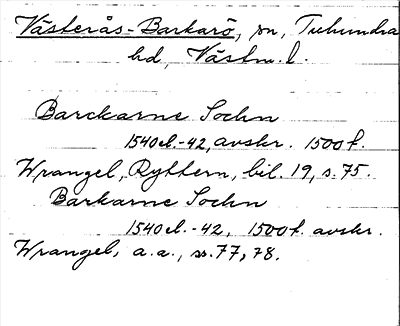 Västerås-Barkarö, sn, Tuhundra
hd, Västm.l.
Barckarne Sochn
1540el.-42, avskr. 1500t.
Wrangel, Ryttern, bil. 19, s. 75.
Barkarne Sochn
1540el.-42, 1500t. avskr.
Wrangel, a.a., ss. 77, 78.